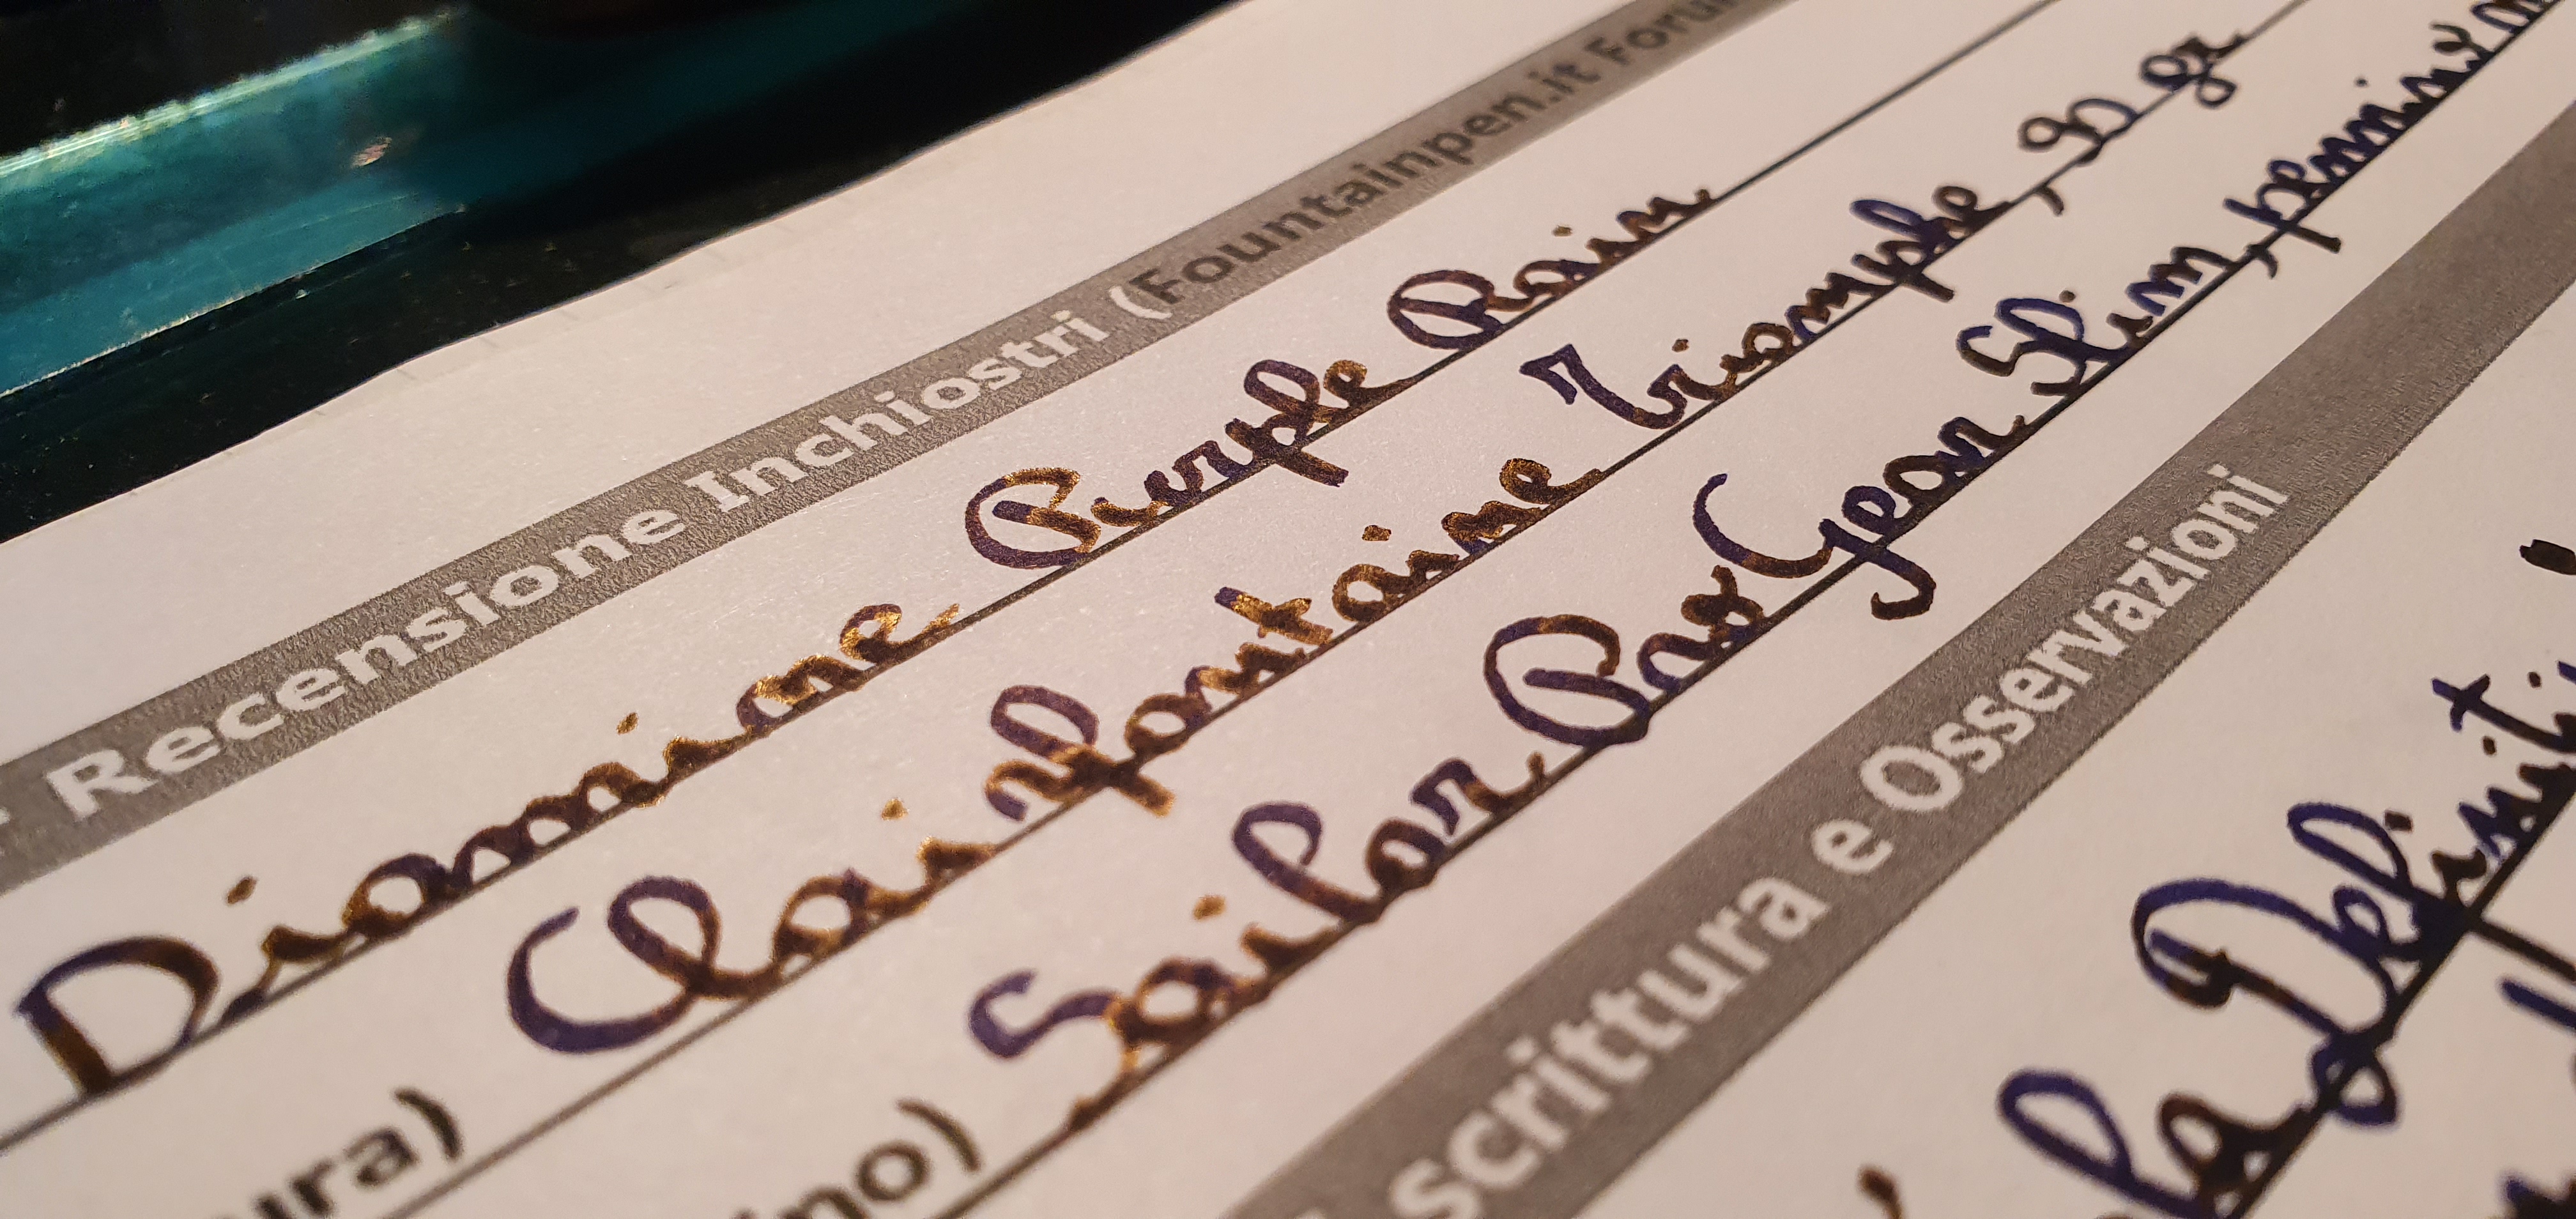 Recensione Inchiostri (Fountainpen.it Forum
Diamine Purple Rain
ura) Clairfontaine Triomphe, 90 gr
ino) Sailor ProGear Slim, pennino
scrittura e Osservazioni
la Definiti